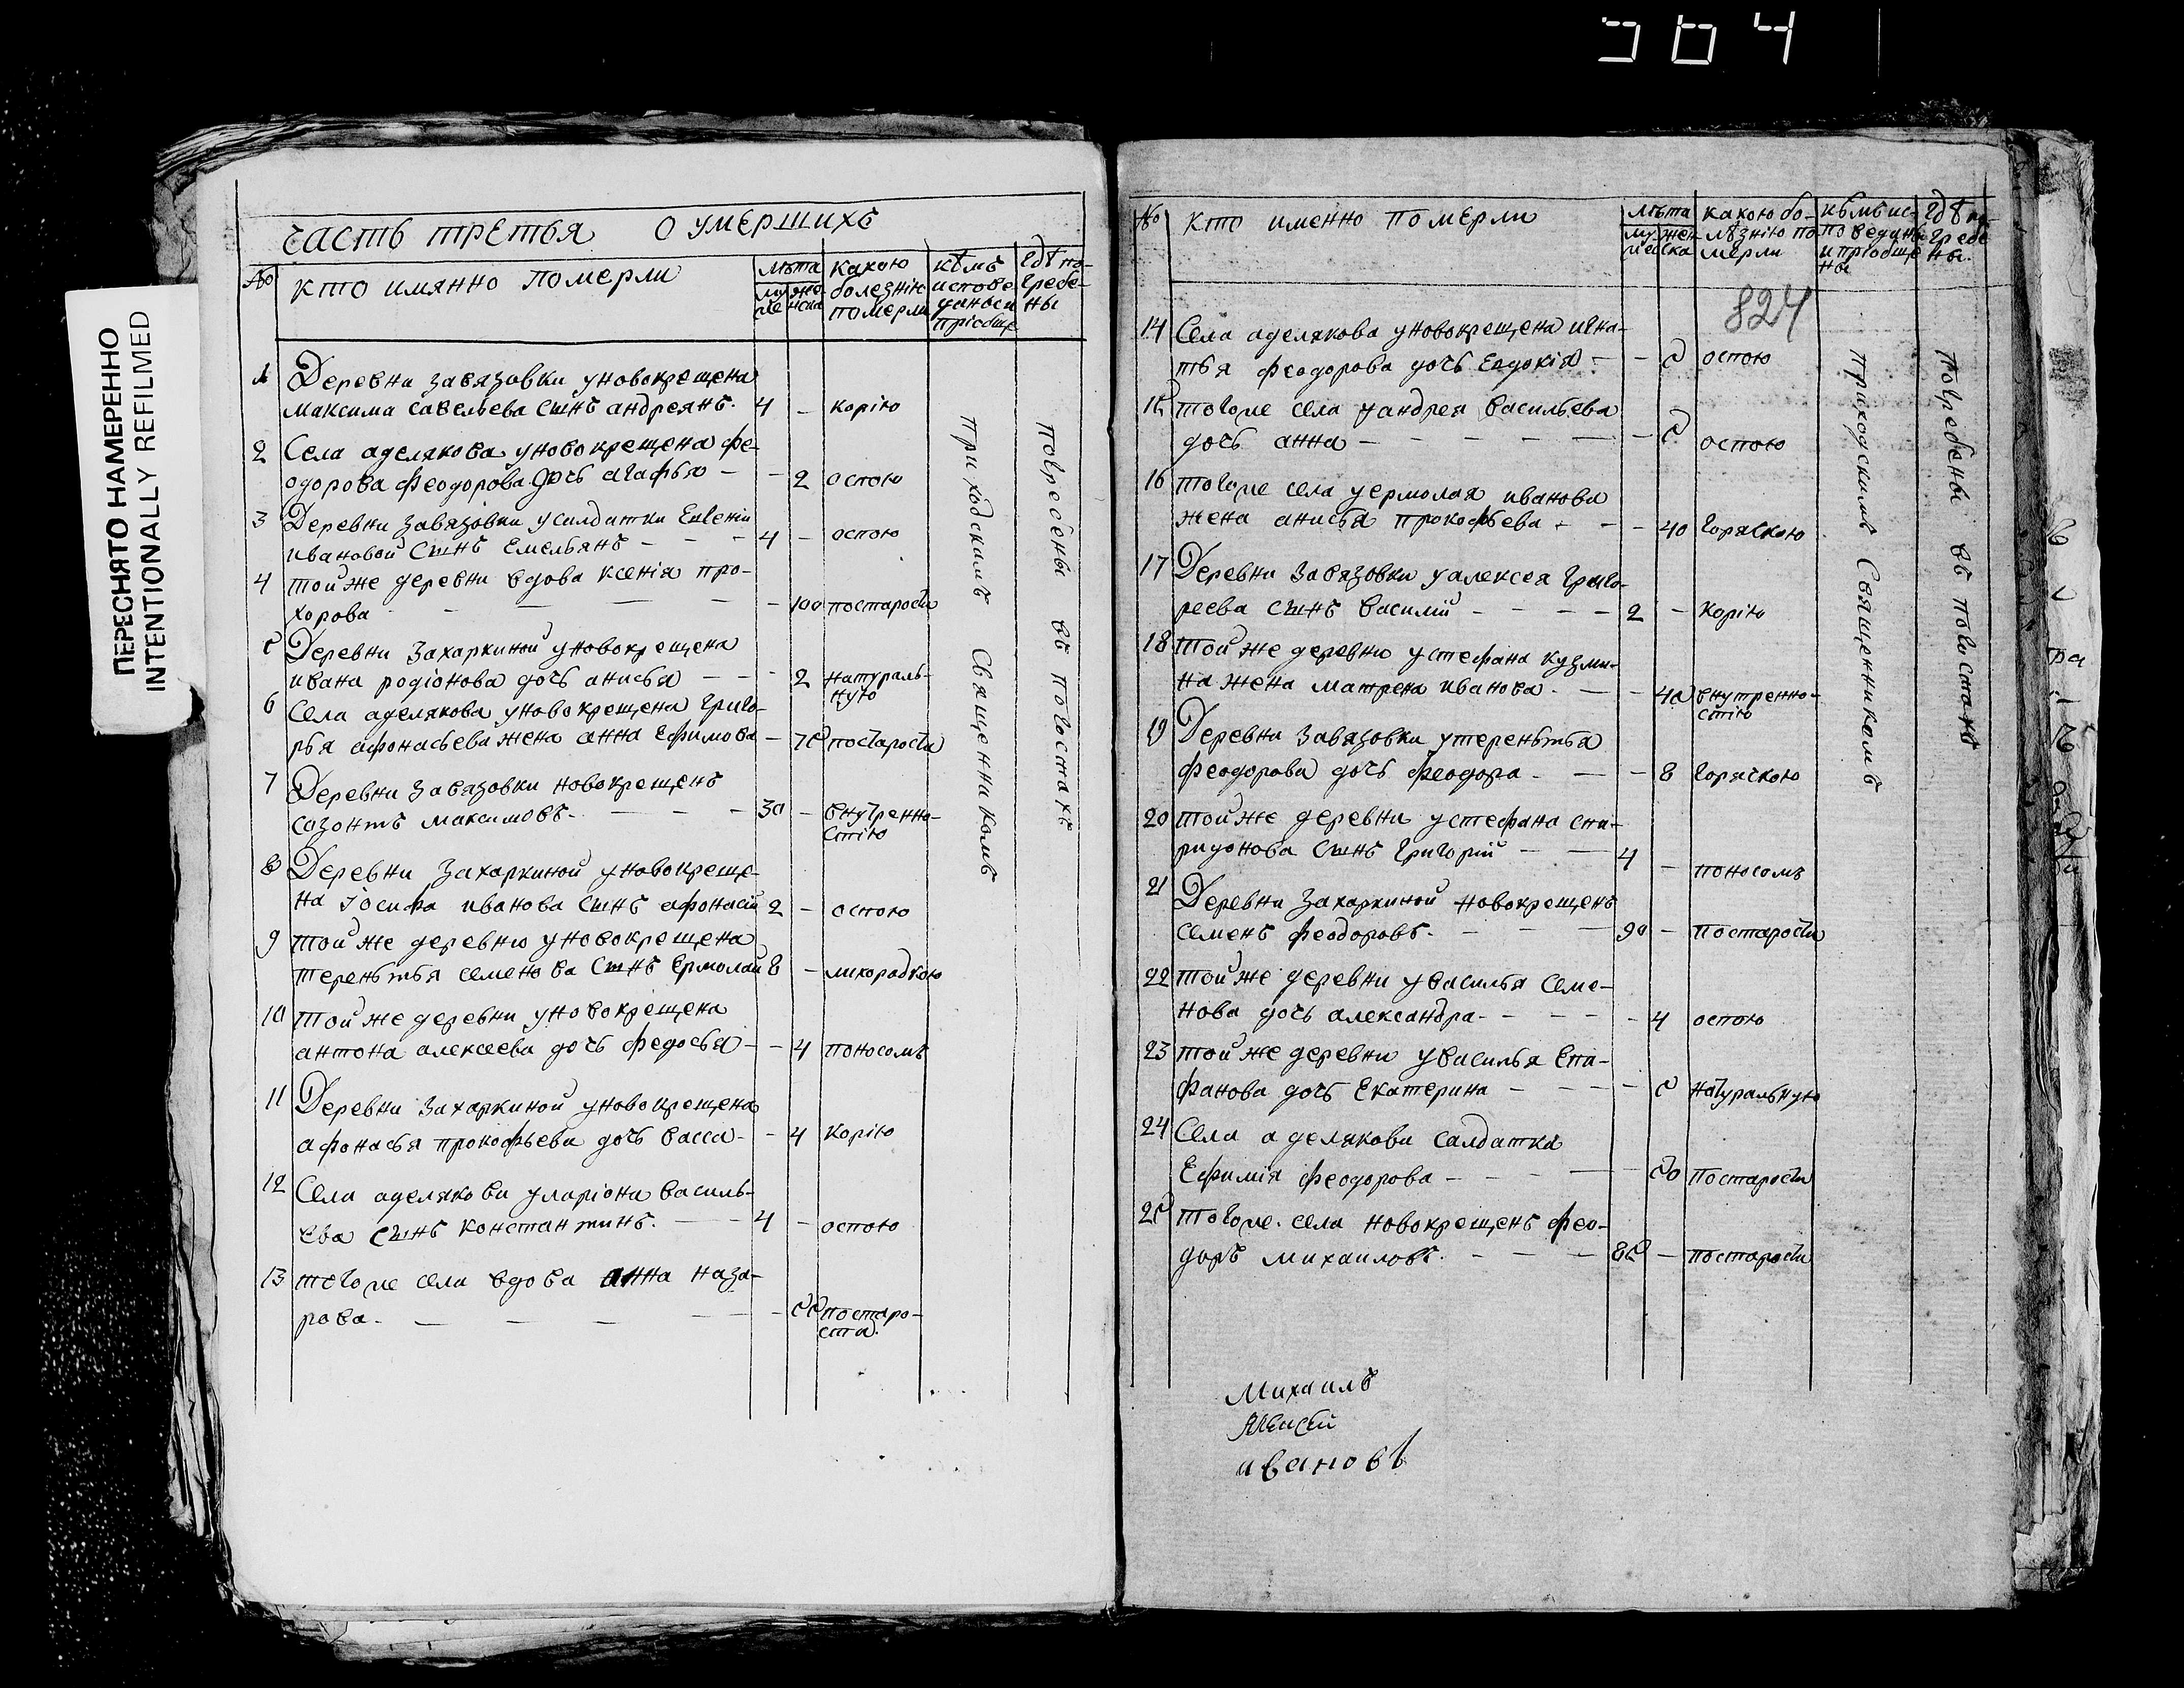 304
ПЕРЕСНЯТО НАМЕРЕННО
INTENTIONALLY REFILMED
часть третья о умершихъ
№ кто имянно померли
лѣта
какою болезнію померли
кѣмъ исповеданы и пріобще
гдѣ погребены
1 Деревни завязовки у новокрещена
максима савельева сынъ андреянъ. 4 – корію
2 Села аделякова у новокрещена фе-
одорова феодорова дочь агафья – – 2 оспою
3 Деревни завязовки у салдатки Евгеніи
ивановой сынъ Емельянъ – – – 4 – оспою
4 той же деревни вдова ксенія про-
хорова – – – – – 100 по старости
5 Деревни захаркиной у новокрещена
ивана родіонова дочь анисья – – – 2 натураль-
ную
6 Села аделякова у новокрещена григо-
рья афонасьева жена анна Ефимова – 75 по старости
7 Деревни завязовки новокрещенъ
созонтъ максимовъ. – – – 30 – внутренно-
стію
8 Деревни захаркиной у новокреще-
на іосифа иванова сынъ афонасій 2 – оспою
9 той же деревни у новокрещена
терентья семенова сынъ Ермолай 8 – лихорадкою
10 той же деревни у новокрещена
антона алексеева дочь федосья – – 4 поносомъ
11 Деревни захаркиной у новокрещена
афонасья прокофьева дочь васса – – 4 корію
12 Села аделякова у ларіона василь-
ева сынъ константинъ. – – 4 – оспою
13 того же села вдова анна наза-
рова. – – – – – – 55 по старо-
сти.
приходскимъ священникомъ
погребены въ погостахъ
№ кто именно померли
лѣта
какою болѣзнію померли
кѣмъ исповеданы и пріобщены
гдѣ погребены.
824
14 Села аделякова у новокрещена игна-
тья феодорова дочь Евдокія – – 5 оспою
15 того же села у андрея васильева
дочь анна – – – – – – 5 оспою
16 того же села у ермолая иванова
жена анисья прокофьева – – – 40 горячкою
17 Деревни завязовки у алексея григо-
реева сынъ василий – – – – 2 – корію
18 той же деревни у стефана кузми-
на жена матрена иванова. – – 40 внутренно-
стію
19 Деревни завязовки у терентья
феодорова дочь феодора – – – 8 горячкою
20 той же деревни у стефана спи-
ридонова сынъ григорий – – 4 – поносомъ
21 Деревни захаркиной новокрещенъ
семенъ феодоровъ. – – – 90 – по старости
22 той же деревни у василья семе-
нова дочь александра – – – – – 4 оспою
23 той же деревни у василья Епи-
фанова дочь Екатерина – – – – 5 натуральную
24 Села аделякова салдатка
Ефимія феодорова – – – – – 50 по старости
25 того же села новокрещенъ фео-
доръ михаиловъ. – – – 85 – по старости
приходскимъ священникомъ
погребены въ погостахъ
Михаилъ
Алексѣй
ивановъ